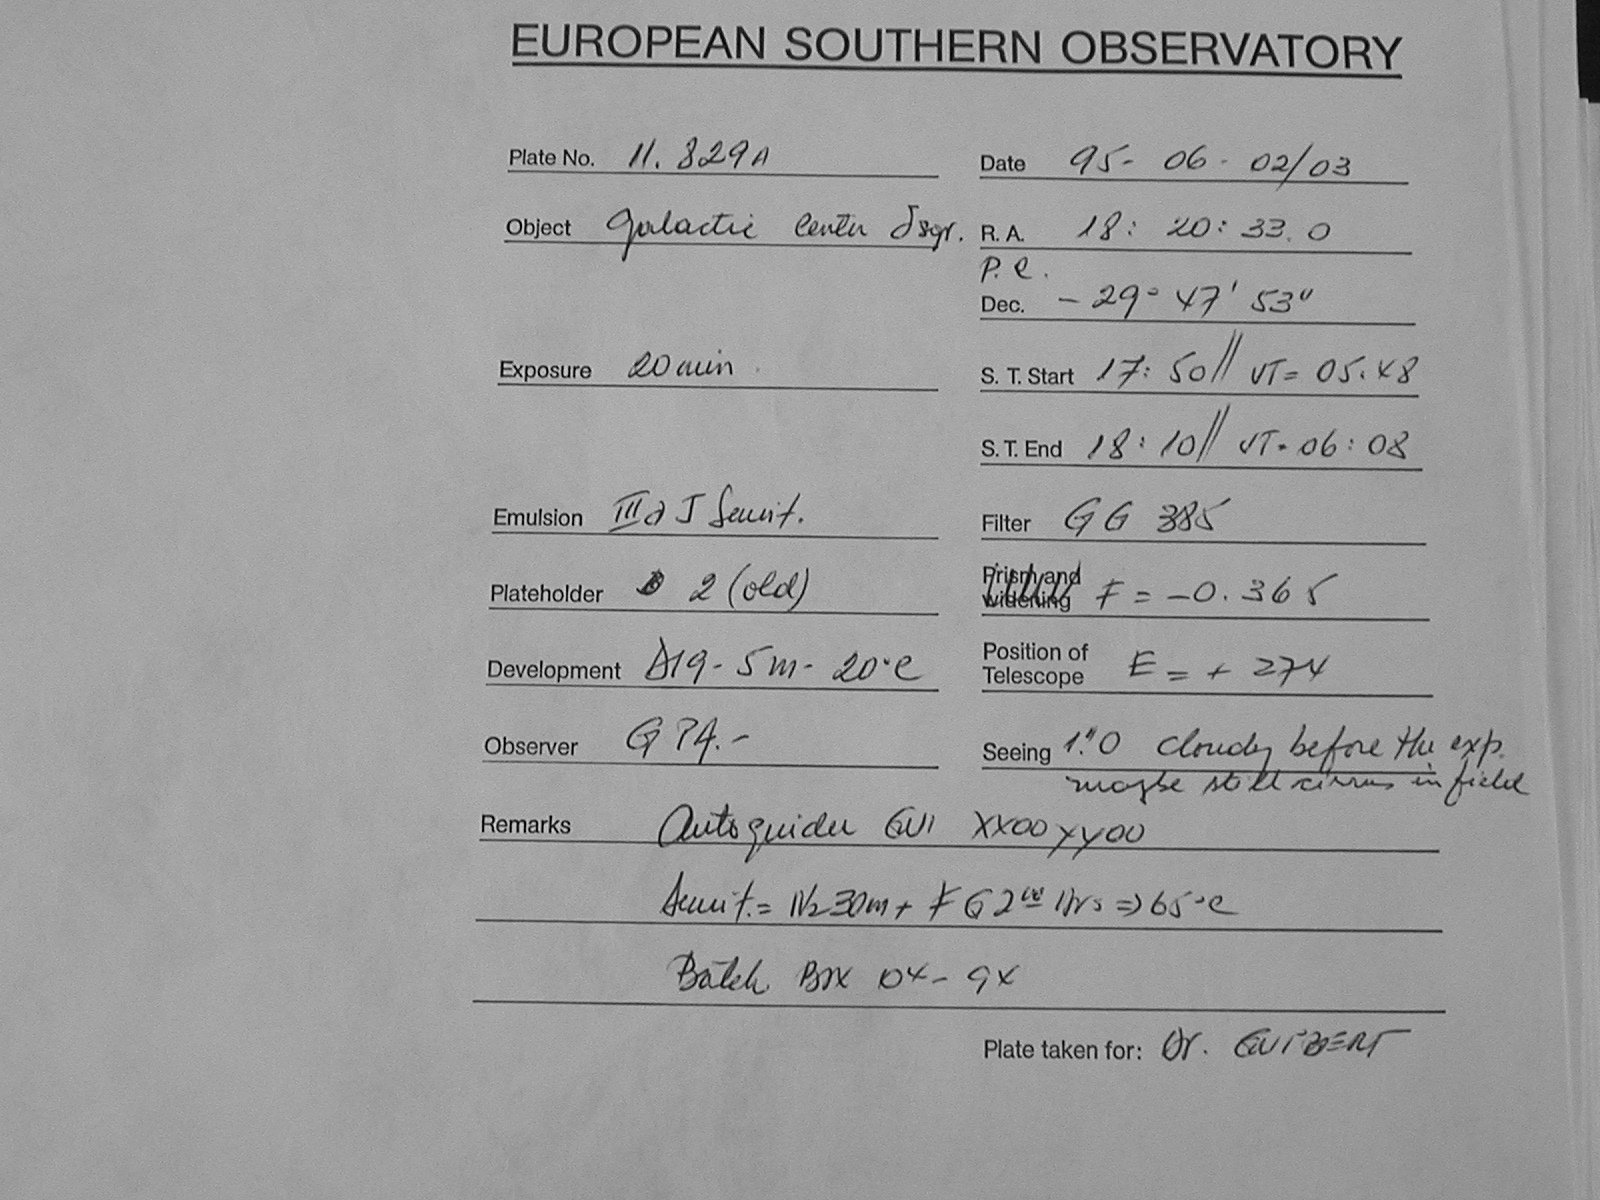 EUROPEAN SOUTHERN OBSERVATORY
Plate No. 11.829A
Date 95-06-02/03
Object Galactic Center δsgr.
R.A. 18: 20: 33.0
P.C.
Dec. -29° 47' 53"
Exposure 20 min.
S. T. Start 17:50// UT= 05.48
S. T. End 18:10// UT=06:08
Emulsion IIIaJ Sensit.
Filter GG 385
Plateholder 2 (old)
Prism and widening F = -0.365
Development D19-5m-20°C
Position of Telescope E = + 274
Observer G PA.-
Seeing 1."0 cloudy before the exp.
maybe still cirrus in field
Remarks Autoguider GUI XX00 YY00
Sensit.= N2 30m + FG 2 Hrs => 65°C
Batch Box 04-94
Plate taken for: Dr. GUIBERT